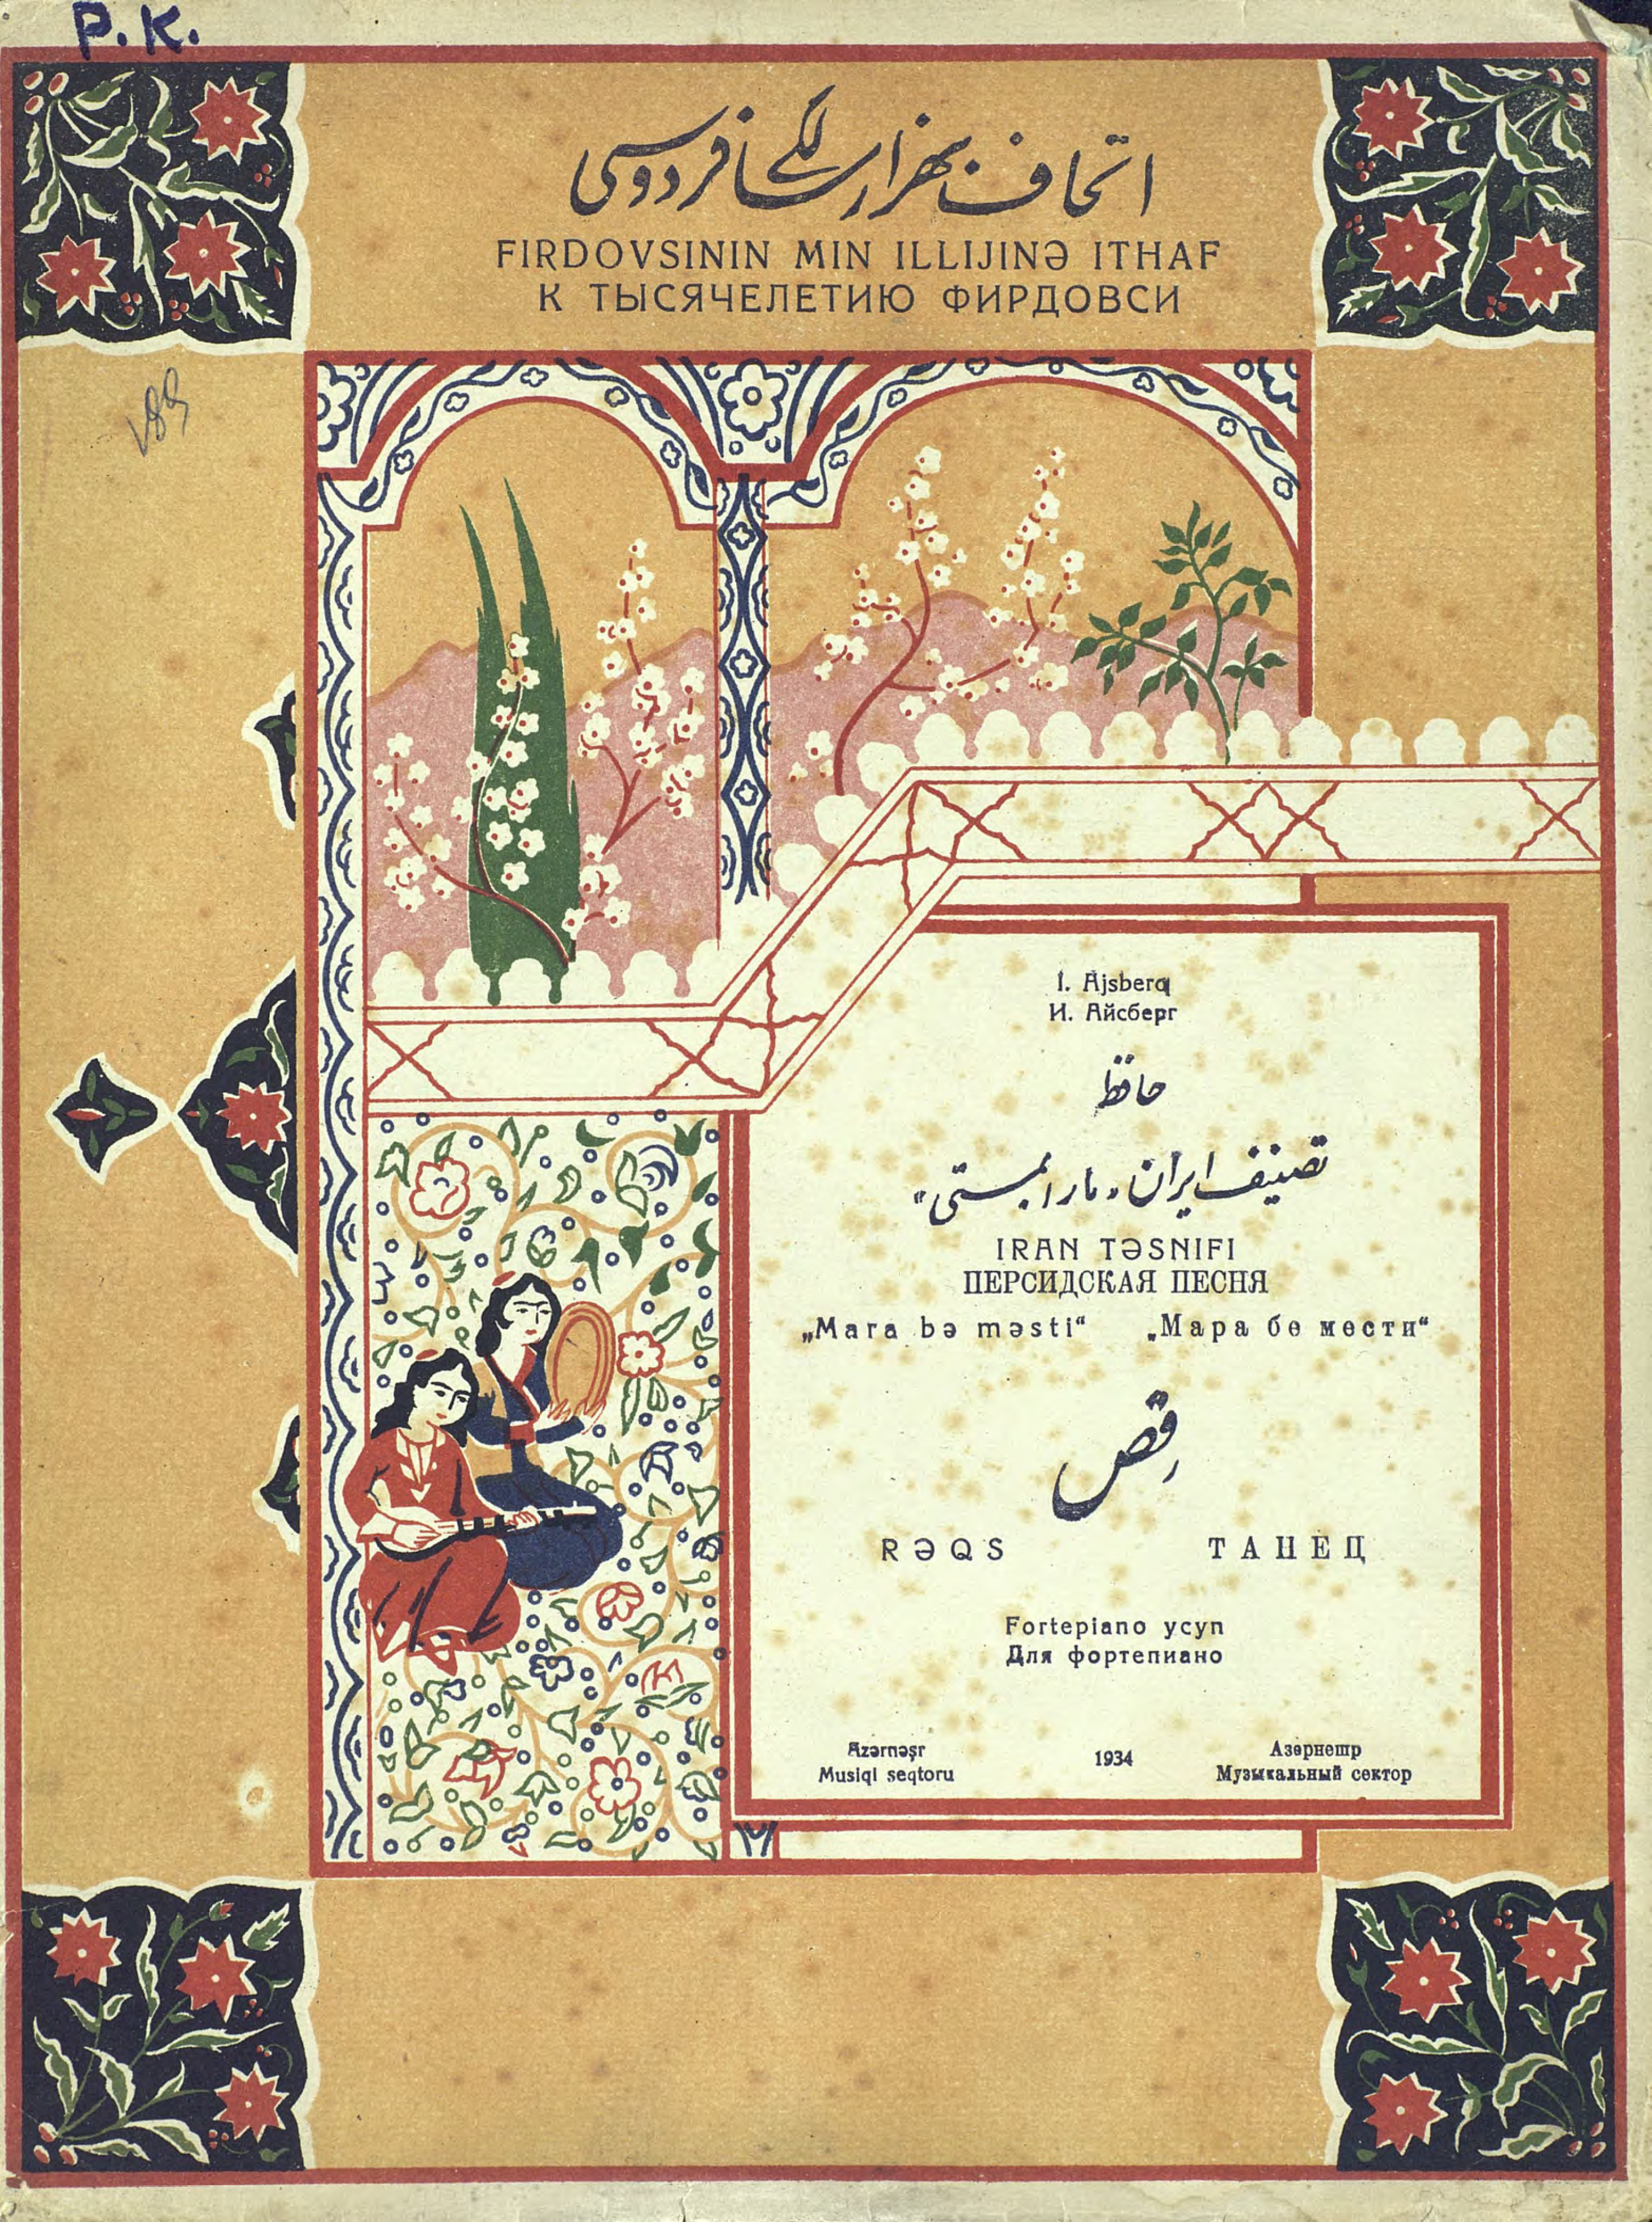 P. K.
اتحاف بهزار سالگی فردوسی
FIRDOVSININ MIN ILLIJINƏ ITHAF
К ТЫСЯЧЕЛЕТИЮ ФИРДОВСИ
I. Ajsberq
И. Айсберг
حافظ
تصنیف ایران „مارا بمستی“
IRAN TƏSNIFI
ПЕРСИДСКАЯ ПЕСНЯ
„Mara bə məsti“ „Мара бе мести“
رقص
RƏQS ТАНЕЦ
Fortepiano ycyn
Для фортепиано
Azərnəşr 1934 Азернешр
Musiqi seqtoru Музыкальный сектор